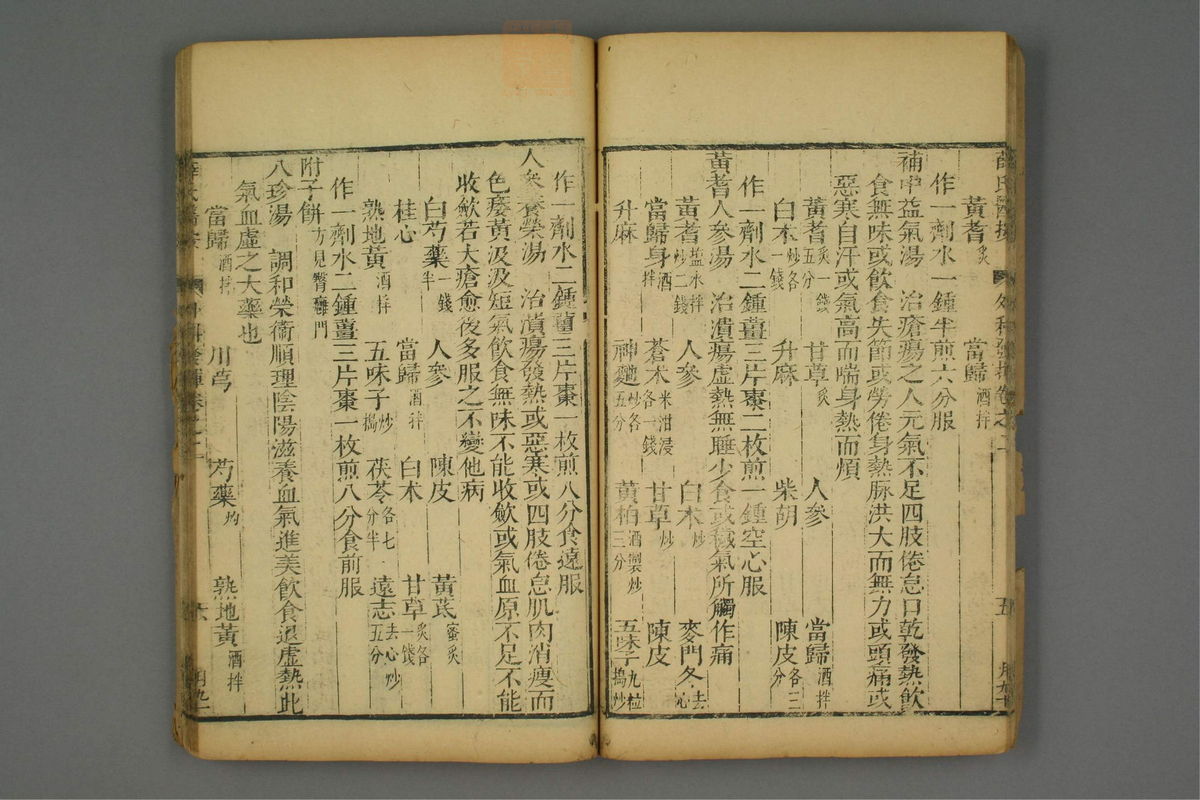 黃耆炙 當歸酒拌
作一劑水一鍾半煎六分服
補中益氣湯 治瘡瘍之人元氣不足四肢倦怠口乾發熱飲
食無味或飲食失節或勞倦身熱脉洪大而無力或頭痛或
惡寒自汗或氣高而喘身熱而煩
黃耆炙一錢五分 甘草炙 人參 當歸酒拌
白朮炒各一錢 升麻 柴胡 陳皮各三分
作一劑水二鍾薑三片棗二枚煎一鍾空心服
黃耆人參湯 治潰瘍虛熱無睡少食或穢氣所觸作痛
黃耆鹽水拌炒二錢 人參 白朮炒 麥門冬去心
當歸身酒拌 蒼朮米泔浸各一錢 甘草炒 陳皮
升麻 神麯炒各五分 黃柏酒製炒三分 五味子九粒搗炒
作一劑水二鍾薑三片棗一枚煎八分食遠服
人參養榮湯 治潰瘍發熱或惡寒或四肢倦怠肌肉消瘦而
色痿黃汲汲短氣飲食無味不能收歛或氣血原不足不能
收歛若大瘡愈後多服之不變他病
白芍藥一錢半 人參 陳皮 黃芪蜜炙
桂心 當歸酒拌 白朮 甘草炙各一錢
熟地黃酒拌 五味子炒搗 茯苓各七分半 遠志去心炒五分
作一劑水二鍾薑三片棗一枚煎八分食前服
附子餅方見臀癰門
八珍湯 調和榮衛順理陰陽滋養血氣進美飲食退虛熱此
氣血虛之大藥也
當歸酒拌 川芎 芍藥炒 熟地黃酒拌
六